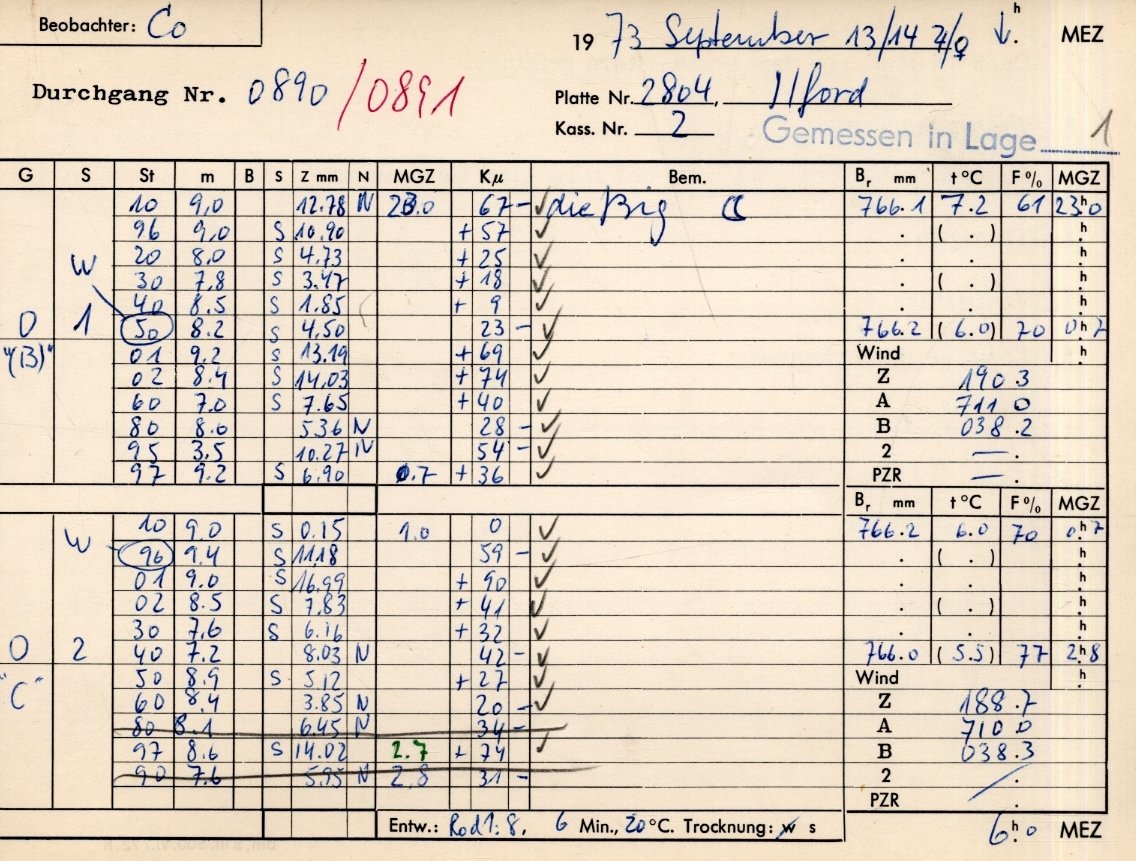 Beobachter: Co
19 73 September 13/14 ♃/♀ h MEZ
Durchgang Nr. 0890 /0891
Platte Nr. 2804, Ilford
Kass. Nr. 2
Gemessen in Lage 1
G S St m B S Z mm N MGZ Kμ Bem. Br mm t °C F % MGZ
10 9,0 12.78 N 23.0 67- ✓ diesig ☾ 766.1 7.2 61 23h0
96 9,0 S 10.90 +57 ✓ . ( . ) h
W 20 8,0 S 4.73 +25 ✓ . . h
30 7,8 S 3.47 +18 ✓ . ( . ) h
40 8.5 S 1.85 + 9 ✓ . . h
0 1 50 8.2 S 4,50 23- ✓ 766.2 (6.0) 70 0h7
"(B)" 01 9.2 S 13.19 +69 ✓ Wind h
02 8.4 S 14,03 +74 ✓ Z 190.3
60 7.0 S 7.65 +40 ✓ A 711 0
80 8.0 5.36 N 28- ✓ B 038.2
95 3,5 10.27 N 54- ✓ 2 — .
97 9.2 S 6.90 0.7 +36 ✓ PZR — .
Br mm t °C F % MGZ
10 9.0 S 0.15 1.0 0 ✓ 766.2 6.0 70 0h7
W 96 9,4 S 11,18 59- ✓ . ( . ) h
01 9.0 S 16,99 +90 ✓ . . h
02 8.5 S 7,83 +41 ✓ . ( . ) h
30 7,6 S 6.16 +32 ✓ . . h
0 2 40 7.2 8.03 N 42- ✓ 766.0 (5.5) 77 2h8
"C" 50 8.9 S 5,12 +27 ✓ Wind h
60 8,4 3.85 N 20- ✓ Z 188.7
80 8.1 6.45 N 34- A 710 0
97 8.6 S 14.02 2.7 +74 ✓ B 038.3
90 7.6 5,95 N 2,8 31- 2 .
PZR .
Entw.: Rod 1:8, 6 Min., 20 °C. Trocknung: w s 6h0 MEZ